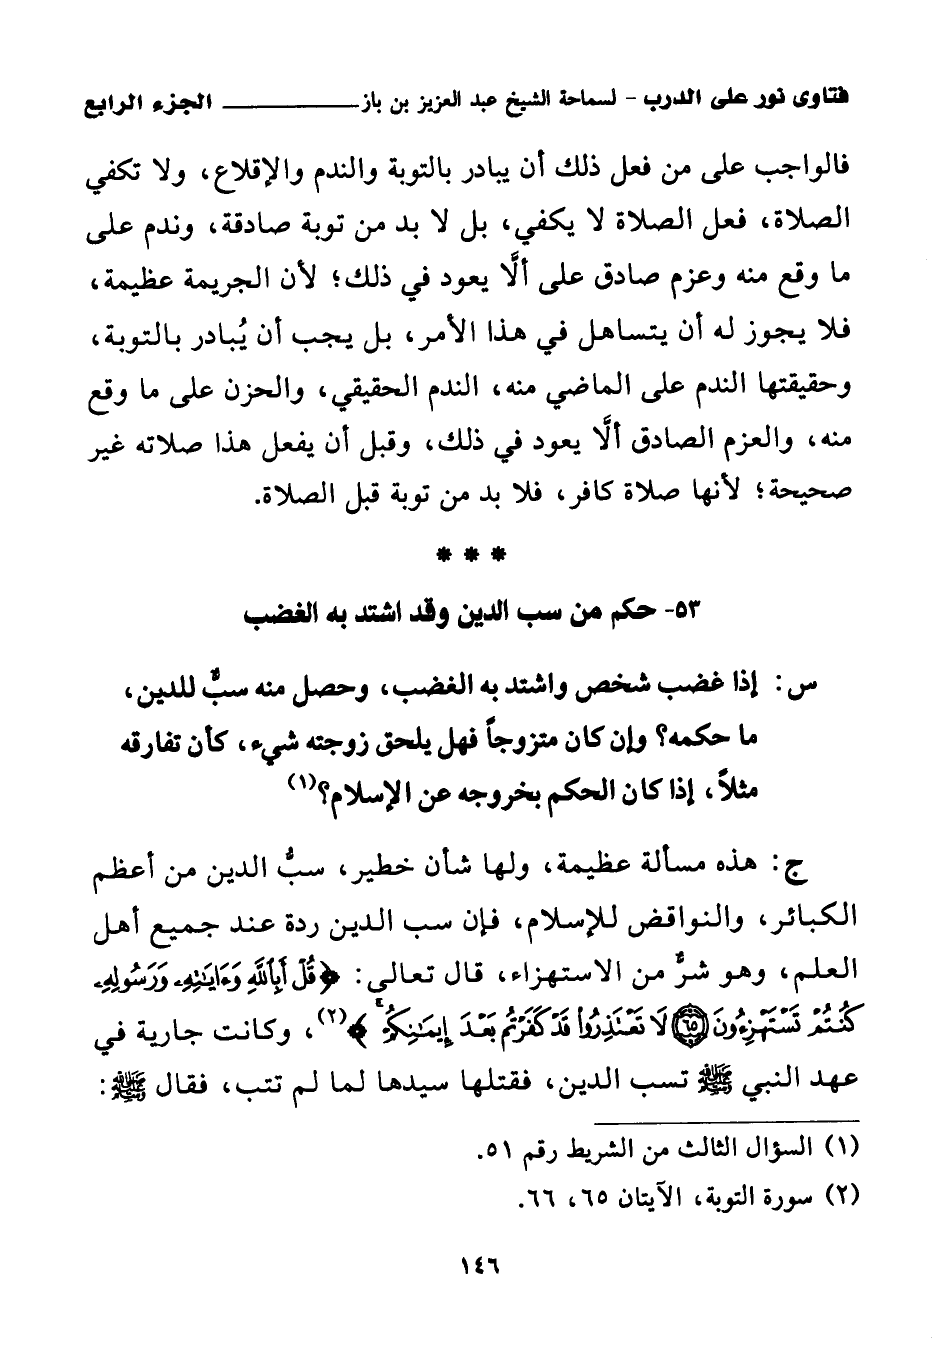 فتاوى نور على الدرب - لسماحة الشيخ عبد العزيز بن باز ــــــــــــــ الجزء الرابع
فالواجب على من فعل ذلك أن يبادر بالتوبة والندم والإقلاع، ولا تكفي
الصلاة، فعل الصلاة لا يكفي، بل لا بد من توبة صادقة، وندم على
ما وقع منه وعزم صادق على ألَّا يعود في ذلك؛ لأن الجريمة عظيمة،
فلا يجوز له أن يتساهل في هذا الأمر، بل يجب أن يُبادر بالتوبة،
وحقيقتها الندم على الماضي منه، الندم الحقيقي، والحزن على ما وقع
منه، والعزم الصادق ألَّا يعود في ذلك، وقبل أن يفعل هذا صلاته غير
صحيحة؛ لأنها صلاة كافر، فلا بد من توبة قبل الصلاة.
* * *
٥٣- حكم من سب الدين وقد اشتد به الغضب
س: إذا غضب شخص واشتد به الغضب، وحصل منه سبٌّ للدين،
ما حكمه؟ وإن كان متزوجاً فهل يلحق زوجته شيء، كأن تفارقه
مثلاً، إذا كان الحكم بخروجه عن الإسلام؟(١)
ج: هذه مسألة عظيمة، ولها شأن خطير، سبُّ الدين من أعظم
الكبائر، والنواقض للإسلام، فإن سب الدين ردة عند جميع أهل
العلم، وهو شرٌّ من الاستهزاء، قال تعالى: ﴿قُلْ أَبِاللَّهِ وَءَايَٰتِهِۦ وَرَسُولِهِۦ
كُنتُمْ تَسْتَهْزِءُونَ ۝٦٥ لَا تَعْتَذِرُوا۟ قَدْ كَفَرْتُم بَعْدَ إِيمَٰنِكُمْ ۚ﴾(٢)، وكانت جارية في
عهد النبي ﷺ تسب الدين، فقتلها سيدها لما لم تتب، فقال ﷺ:
(١) السؤال الثالث من الشريط رقم ٥١.
(٢) سورة التوبة، الآيتان ٦٥، ٦٦.
١٤٦